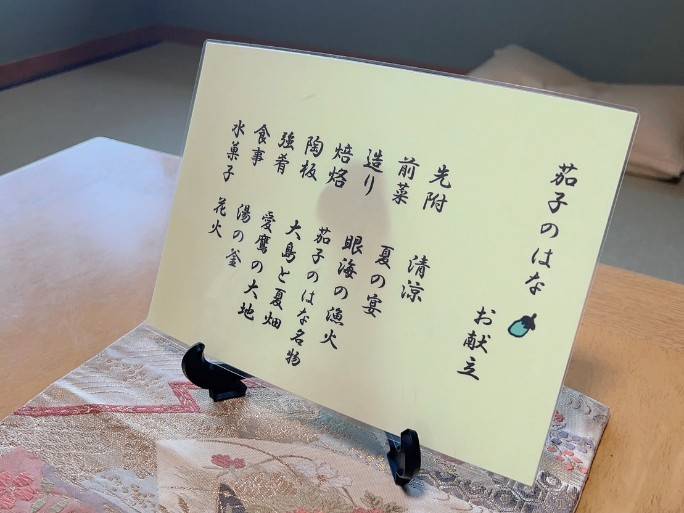 茄子のはな
お献立
先附 清涼
前菜 夏の宴
造り 眼海の漁火
焙烙 茄子のはな名物
陶板 大島と夏畑
強肴 愛鷹の大地
食事 湯の釜
水菓子 花火